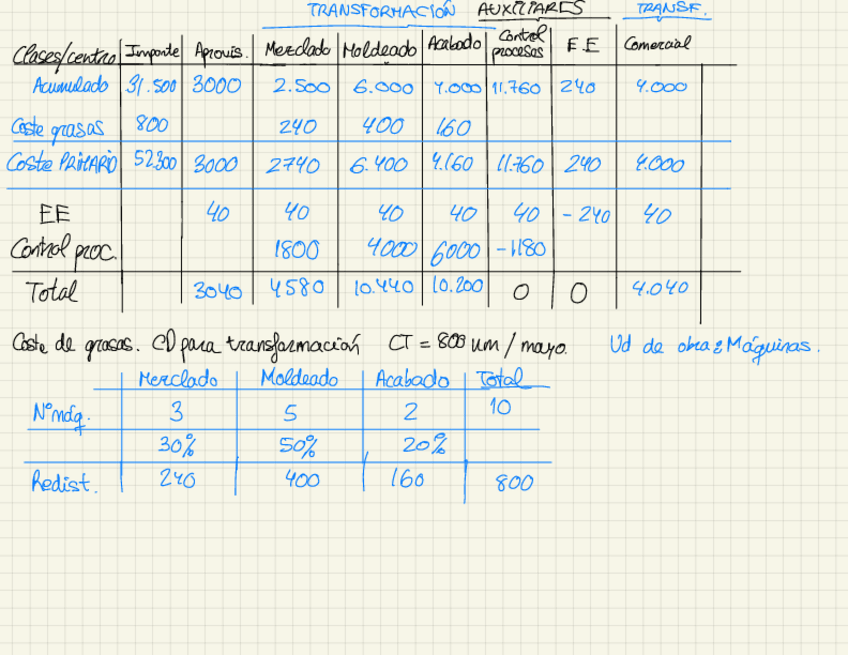 TRANSFORMACIÓN AUXILIARES TRANSF.
Clases/centro Importe Aprovis. Mezclado Moldeado Acabado Control procesos E E Comercial
Acumulado 31.500 3000 2.500 6.000 4.000 11.760 240 4.000
Coste grasas 800 240 400 160
Coste PRIMARIO 52300 3000 2740 6.400 4.160 11.760 240 4.000
EE 40 40 40 40 40 -240 40
Control proc. 1800 4000 6000 -1180
Total 3040 4580 10.440 10.200 0 0 4.040
Coste de grasas. CD para transformación CT = 800 um / mayo. Ud de obra: Máquinas.
Mezclado Moldeado Acabado Total
Nº máq. 3 5 2 10
30% 50% 20%
Redist. 240 400 160 800